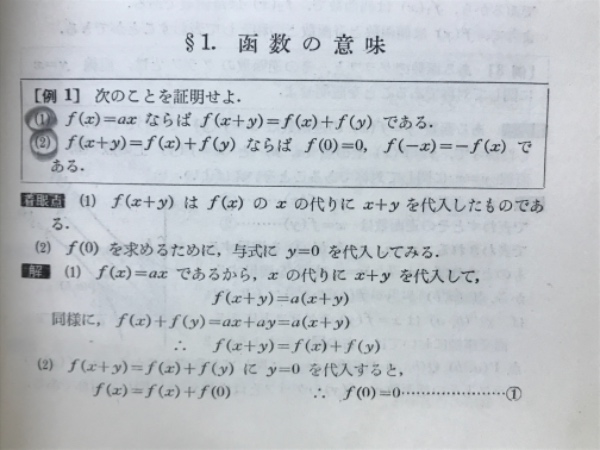 §1. 函数の意味
[例 1] 次のことを証明せよ.
(1) f(x)=ax ならば f(x+y)=f(x)+f(y) である.
(2) f(x+y)=f(x)+f(y) ならば f(0)=0, f(-x)=-f(x) で
ある.
着眼点 (1) f(x+y) は f(x) の x の代りに x+y を代入したものであ
る.
(2) f(0) を求めるために, 与式に y=0 を代入してみる.
解 (1) f(x)=ax であるから, x の代りに x+y を代入して,
f(x+y)=a(x+y)
同様に, f(x)+f(y)=ax+ay=a(x+y)
∴ f(x+y)=f(x)+f(y)
(2) f(x+y)=f(x)+f(y) に y=0 を代入すると,
f(x)=f(x)+f(0) ∴ f(0)=0……………………①